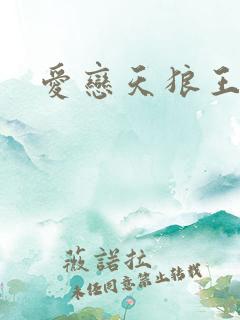 愛戀天狼王
薇諾拉
未經同意禁止轉載